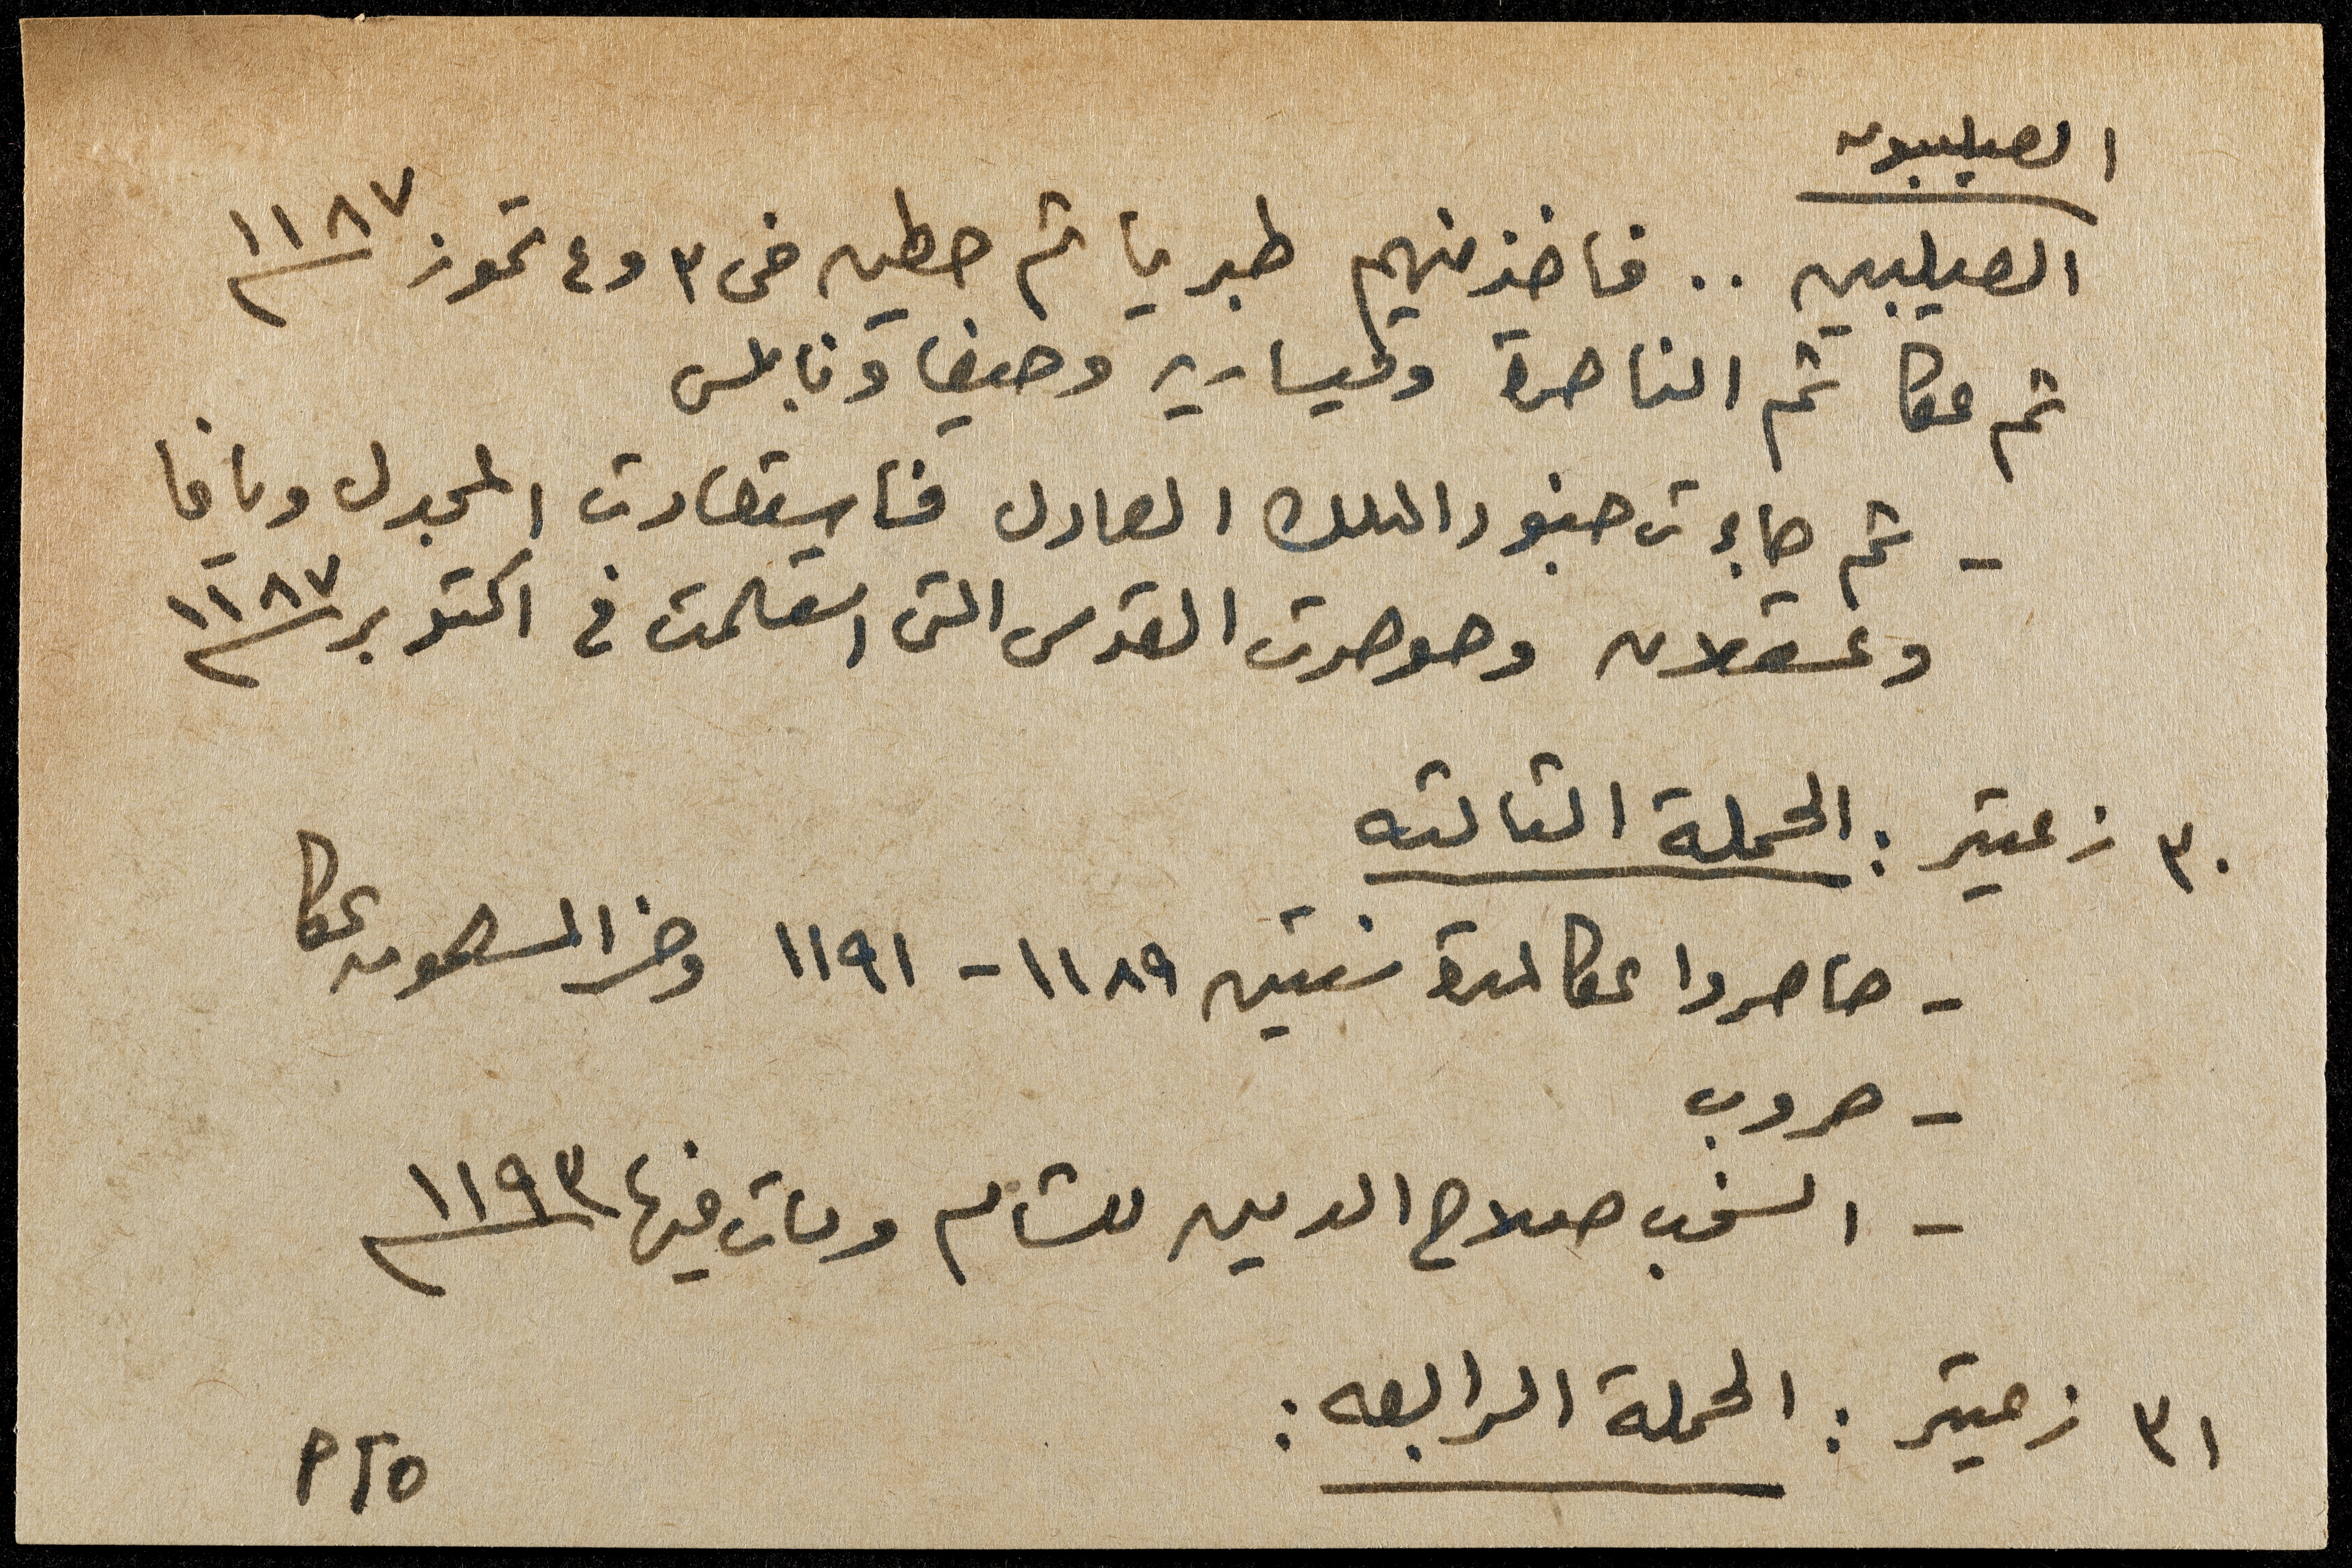 الصليبيون
الصليبيين .. فاخذ منهم طبريا ثم حطين في ٣ و ٤ تموز ١١٨٧
ثم عكا ثم الناصرة وقيسارية وحيفا ونابلس
- ثم جاءت جنود الملك العادل فاستعادت المجدل ويافا
وعسقلان وحوصرت القدس التي استسلمت في اكتوبر ١١٨٧
٣٠ زعيتر : الحملة الثالثه
- حاصروا عكا لمدة سنتين ١١٨٩ - ١١٩١ وخسر المسلمون عكا
- حروب
- انسحب صلاح الدين للشام ومات فيها ١١٩٣
٣١ زعيتر : الحملة الرابعه :
PTO